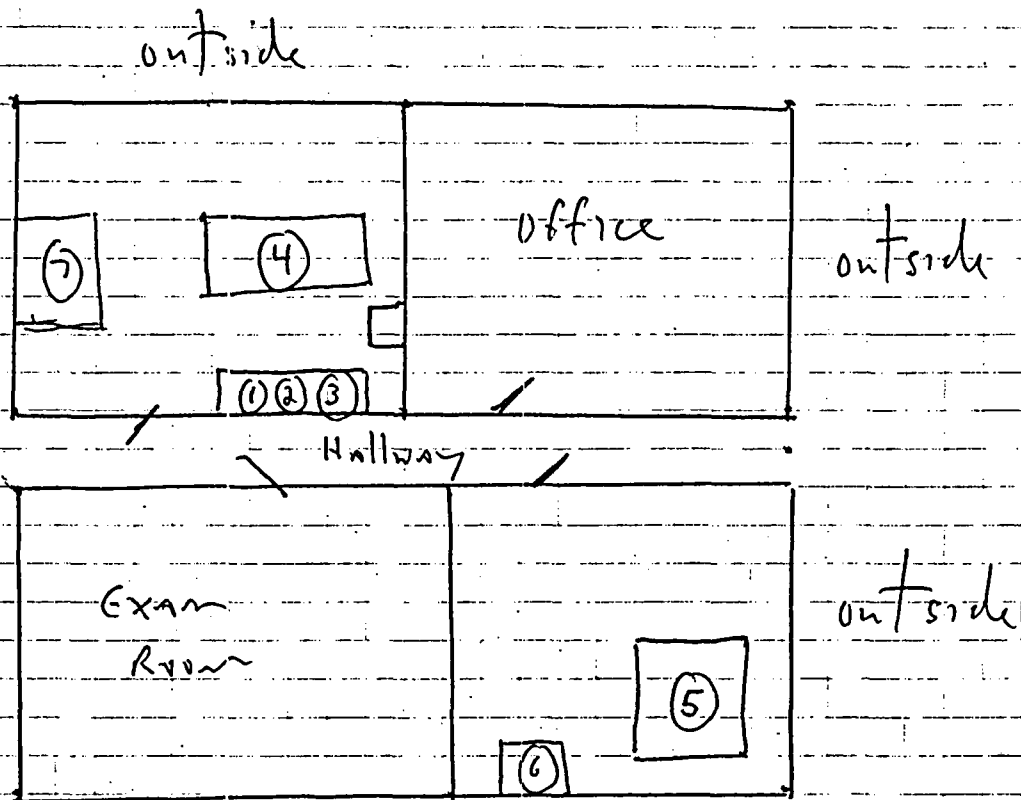 outside
Office
7
4
outside
1 2 3
Hallway
Exam
Room
outside
5
6